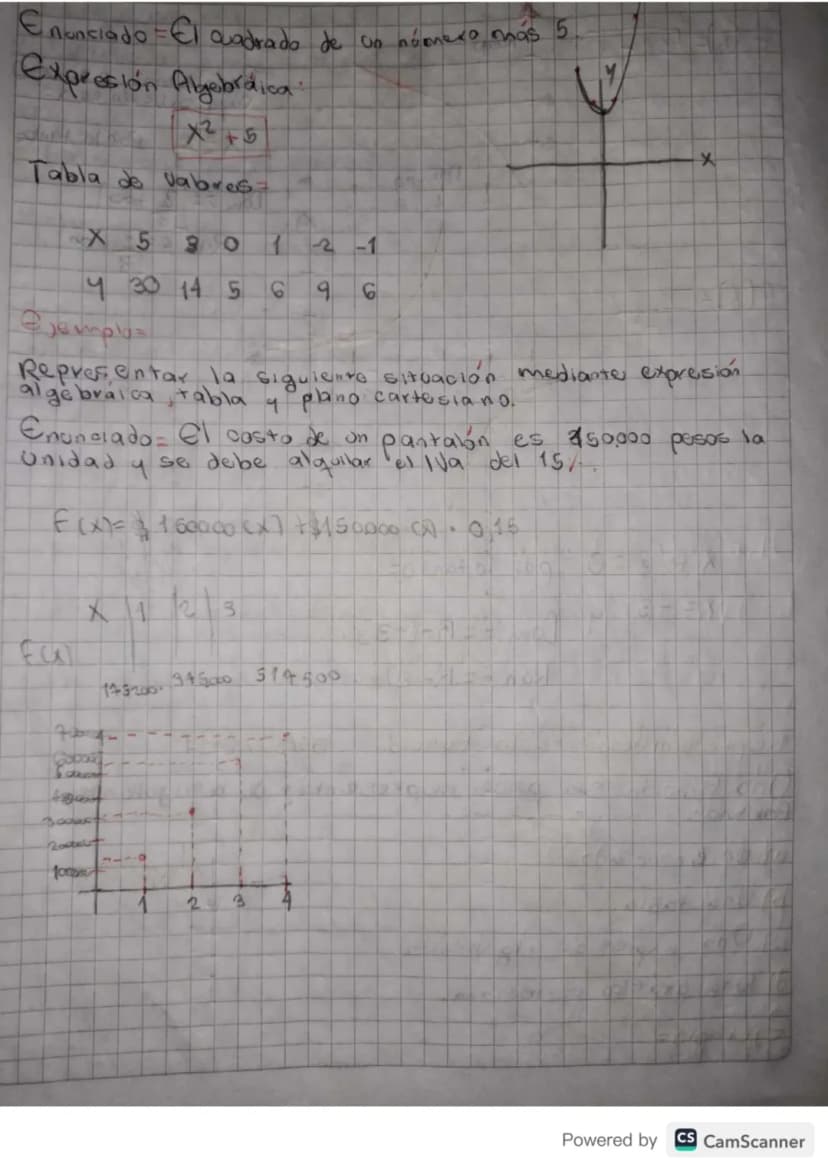 Enunciado = El cuadrado de un número más 5.
Expresión Algebráica:
x² + 5
y
x
Tabla de valores=
X 5 3 0 1 -2 -1
y 30 14 5 6 9 6
Ejemplo=
Represientar la siguiente situación mediante expresión
algebraica, tabla y plano cartesiano.
Enunciado= El costo de un pantalón es $150.000 pesos la
unidad y se debe alquilar el IVa del 15%.
F(x)= $ 150000 (x) + $150000 (x) · 0,15
X | 1 | 2 | 3
F(x)
345000 517500
1 2 3 4
Powered by CS CamScanner